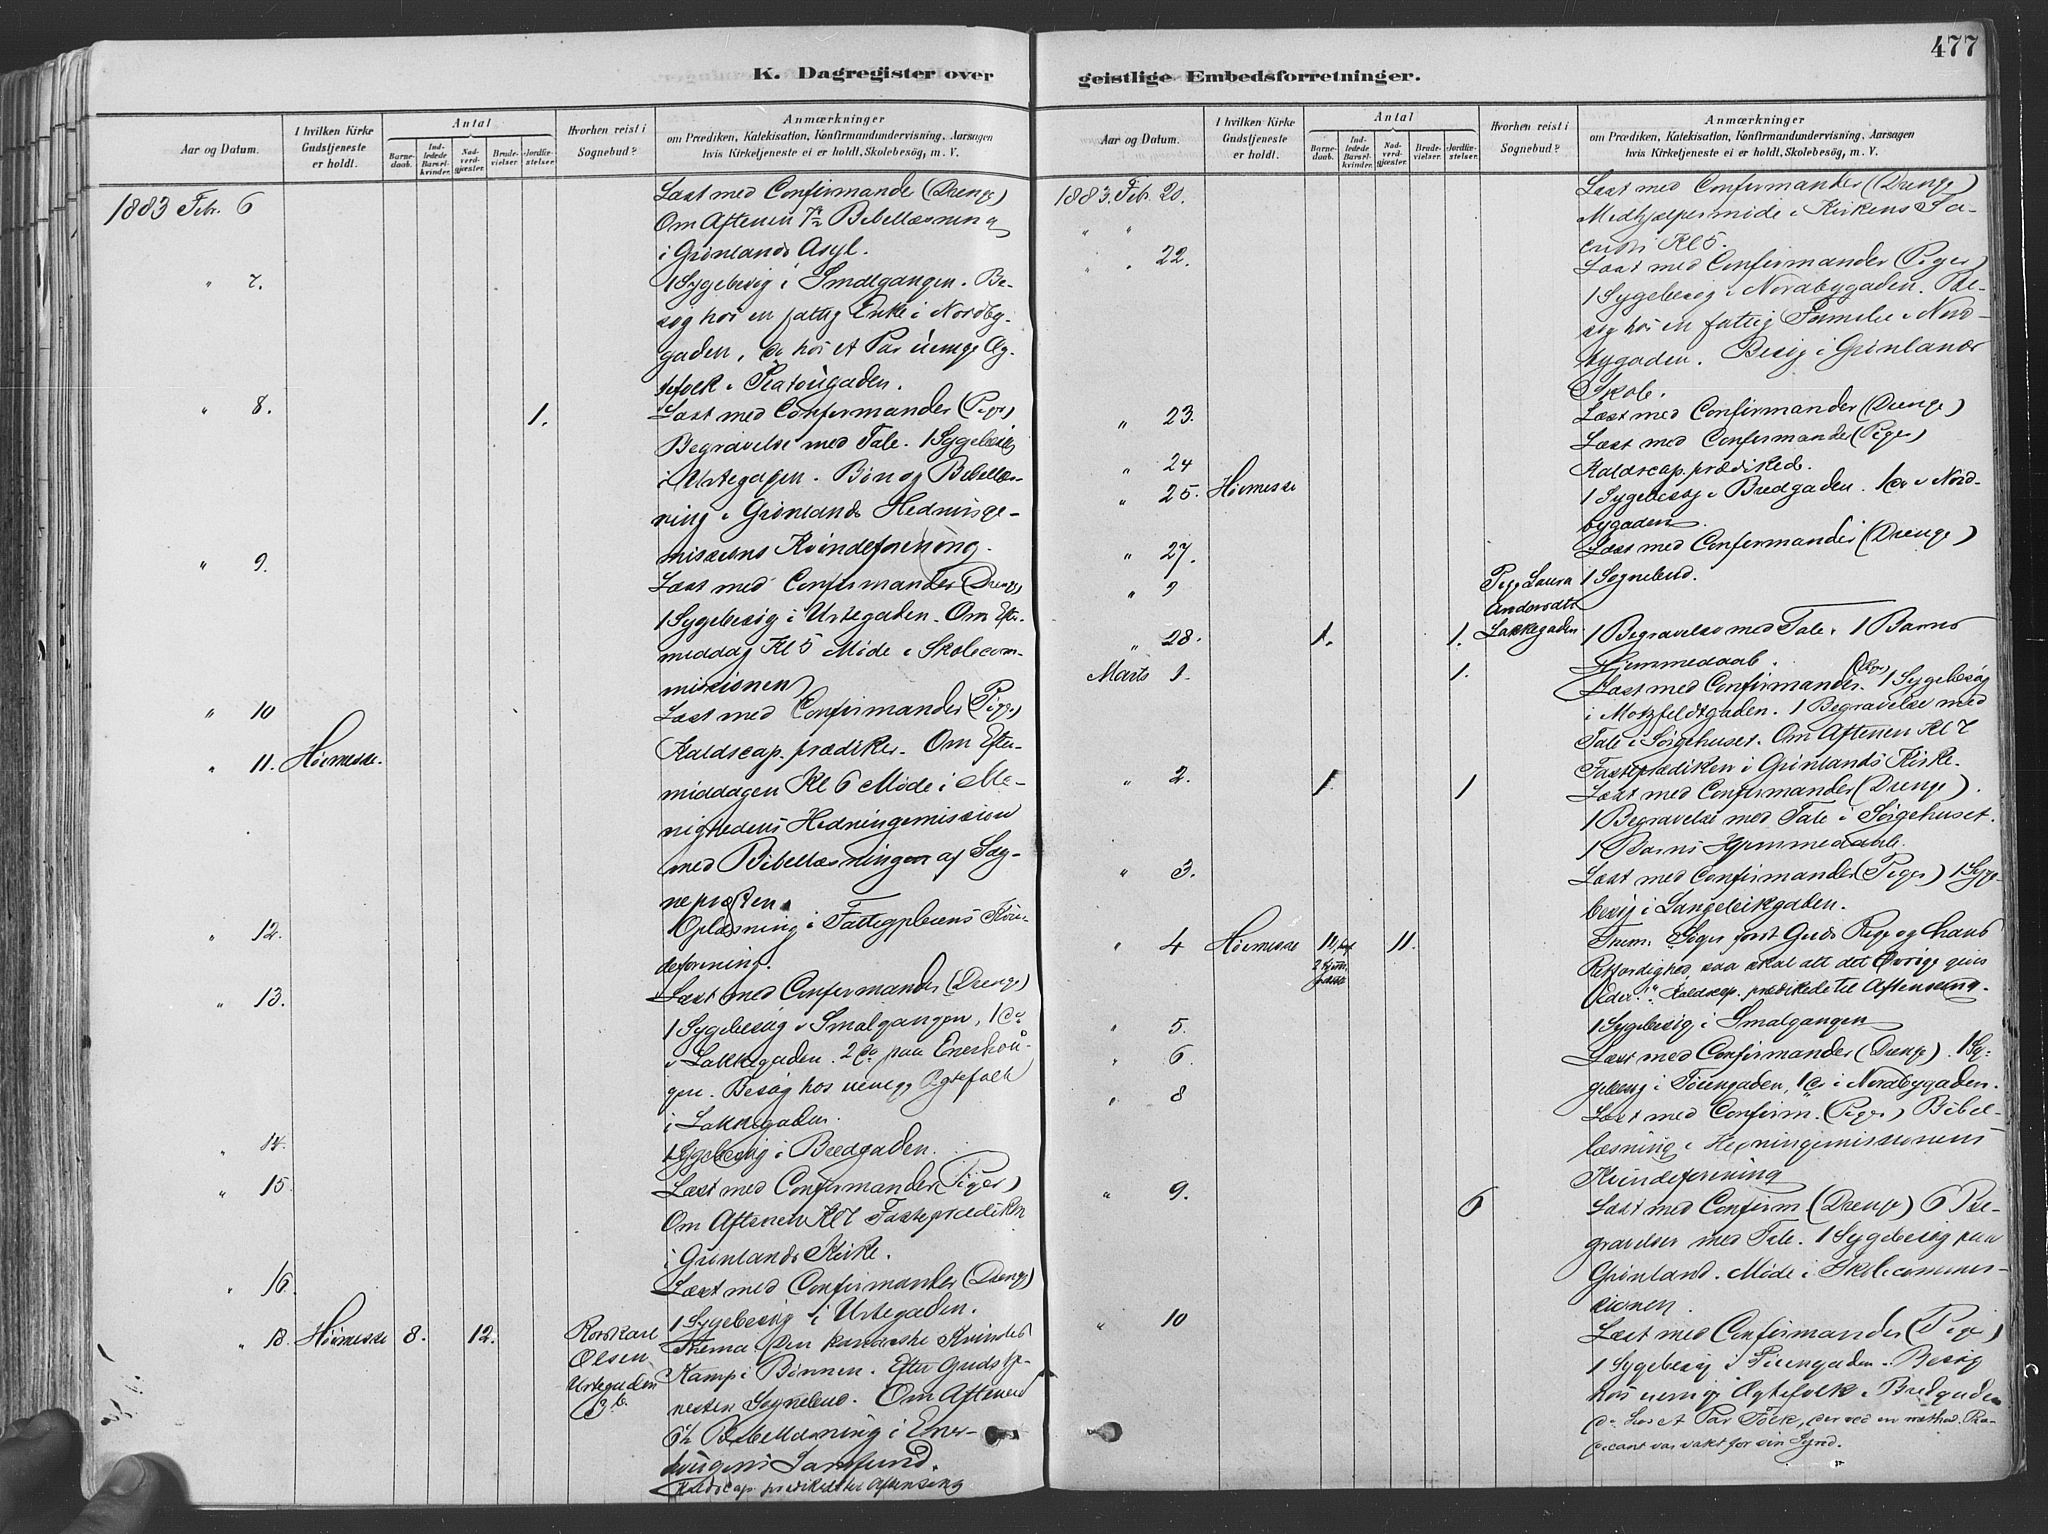 K. Dagregister over
Aar og Datum.
I hvilken Kirke Gudstjeneste er holdt.
Antal
Barnedaab.
Indledede Barselkvinder.
Nadverdgjæster.
Brudevielser.
Jordfæstelser.
Hvorhen reist i Sognebud?
Anmærkninger
om Prædiken, Katekisation, Konfirmandundervisning, Aarsagen
hvis Kirketjeneste ei er holdt, Skolebesøg, m. V.
1883 Febr. 6
Læst med Confirmande (Drenge)
Om Aftenen 7½ Bibellæsning
i Grønlands Asyl.
" 7.
1 Sygebesøg i Smalgangen. Be-
søg hos en fattig Enke i Nordby-
gaden, do hos et Par uenige Æg-
tefolk i Platougaden.
" 8.
1.
Læst med Confirmander (Piger)
Begravelse med Tale. 1 Sygebesøg
i Urtegaden. Bøn og Bibellæs-
ning i Grønlands Hednings-
missions Kvindeforening.
" 9.
Læst med Confirmander (Drenge)
1 Sygebesøg i Urtegaden. Om Efter-
meddag Kl 5 Møde i Skolecom-
missionen
" 10
Læst med Confirmander (Piger)
" 11. Høimesse.
Kaldscap. prædiker. Om Efter-
middagen Kl 6 Møde i Me-
nighedens Hedningemission
med Bibellæsningen af Sog-
nepræsten.
" 12.
Oplæsning i Fattigpleiens Kvin-
deforening.
" 13.
Læst med Confirmander (Drenge)
1 Sygebesøg i Smalgangen, 1 do
i Lakkegaden. 2 do paa Enerhou-
gen. Besøg hos uenige Ægtefolk
i Lakkegaden.
" 14.
1 Sygebesøg i Bredgaden.
" 15.
Læst med Confirmander (Piger)
Om Aftenen Kl 7 Fasteprædiken
i Grønlands Kirke.
" 16.
Læst med Confirmander (Drenge)
1 Sygebesøg i Urtegaden.
" 18. Høimesse 8. 12.
Olsen
Urtegaden
3 b.
Thema Den kanaaske Kvindes
Kamp i Bønnen. Efter Gudstje-
nesten Sognebud. Om Aftenen
6½ Bibellæsning i Ener-
hougens Samfund.
Kaldscap. prædikede til Aftensang

geistlige Embedsforretninger.
477
Aar og Datum.
I hvilken Kirke Gudstjeneste er holdt.
Antal
Barnedaab.
Indledede Barselkvinder.
Nadverdgjæster.
Brudevielser.
Jordfæstelser.
Hvorhen reist i Sognebud?
Anmærkninger
om Prædiken, Katekisation, Konfirmandundervisning, Aarsagen
hvis Kirketjeneste ei er holdt, Skolebesøg, m. V.
1883. Febr. 20.
Læst med Confirmander (Drenge)
" "
Medhjælpermøde i Kirkens Sa-
cristi Kl 5.
" " 22.
Læst med Confirmander (Piger)
1 Sygebesøg i Nordbygaden. Be-
søg hos en fattig Familie i Nord-
bygaden. Besøg i Grønlands
Skole.
" 23.
Læst med Confirmander (Drenge)
" 24
Læst med Confirmander (Piger)
" 25. Høimesse
Kaldscap. prædikede.
1 Sygebesøg i Bredgaden. 1 do i Nord-
bygaden
" 27.
Læst med Confirmander (Drenge)
Pige Laura
Lakkegaden
1 Sognebud.
" 28. 1. 1.
1 Begravelse med Tale. 1 Barns
Hjemmedaab.
Marts 1. 1.
Læst med Confirmander. 1 Sygebesøg
i Motzfeldtgaden. 1 Begravelse med
Tale i Sørgehuset. Om Aftenen Kl 7
Fasteprædiken i Grønlands Kirke.
" 2. 1. 1
Læst med Confirmander (Drenge).
1 Begravelse med Tale i Sørgehuset.
1 Barns Hjemmedaab.
" 3.
Læst med Confirmander (Piger) 1 Syge-
besøg i Langeleikgaden.
" 4 Høimesse 11, 11.
Them: "Søger først Guds Rige og hans
Retfærdighed, saa skal alt det Øvrige gives
Eder". Kaldscap. prædikede til Aftensang.
" 5.
1 Sygebesøg i Smalgangen
" 6.
Læst med Confirmander (Drenge). 1 Sy-
gebesøg i Tøiengaden, 1 do i Nordbygaden.
" 8
Læst med Confirm. (Piger) Bibel-
læsning i Hedningemissionens
Kvindeforening
" 9. 6
Læst med Confirm. (Drenge) 6 Be-
gravelser med Tale. 1 Sygebesøg paa
Grønland. Møde i Skolecommis-
sionen.
" 10
Læst med Confirmander (Pige)
1 Sygebesøg i Tøiengaden. Besøg
hos uenige Ægtefolk i Bredgaden
do hos et Par Folk, der ved en
var vakt for sin Synd.